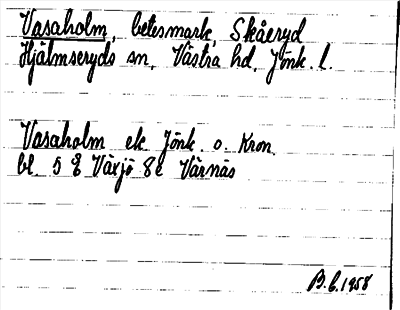 Vasaholm, betesmark, Skåeryd
Hjälmseryds sn, Västra hd, Jönk. l.
Vasaholm ek Jönk. o. Kron.
bl. 5 Växjö 8e Värnäs
B.6.1958